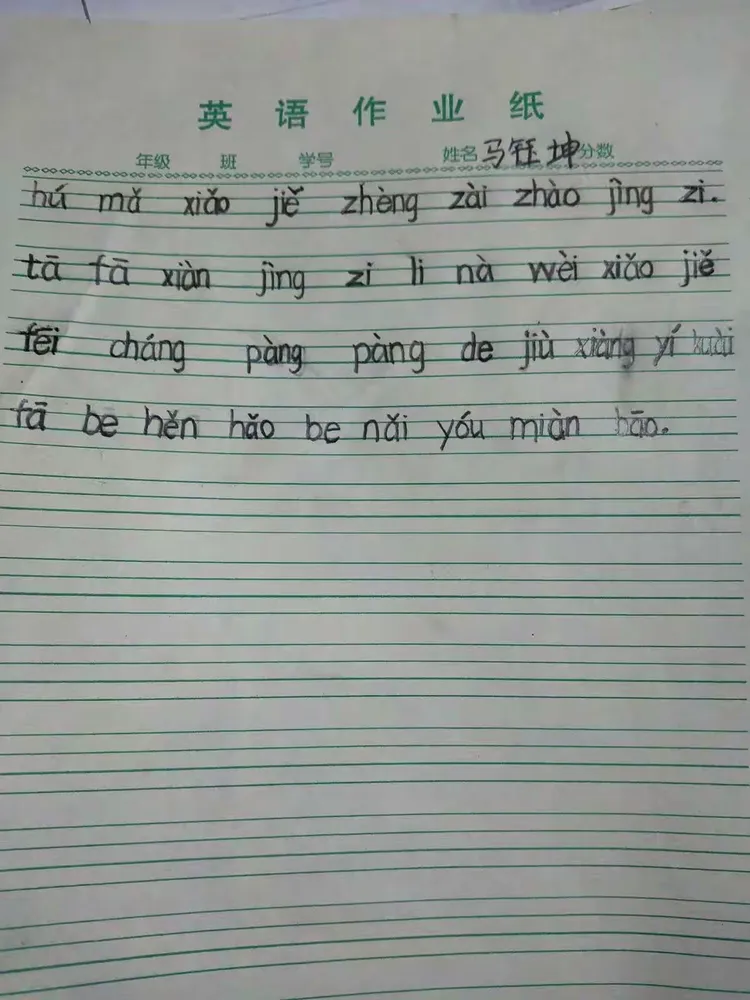 英语作业纸
年级 班 学号 姓名 马钰坤 分数
hú mǎ xiǎo jiě zhèng zài zhào jìng zi.
tā fā xiàn jìng zi li nà wèi xiǎo jiě
fēi cháng pàng pàng de jiù xiàng yí kuài
fā be hěn hǎo be nǎi yóu miàn bāo.